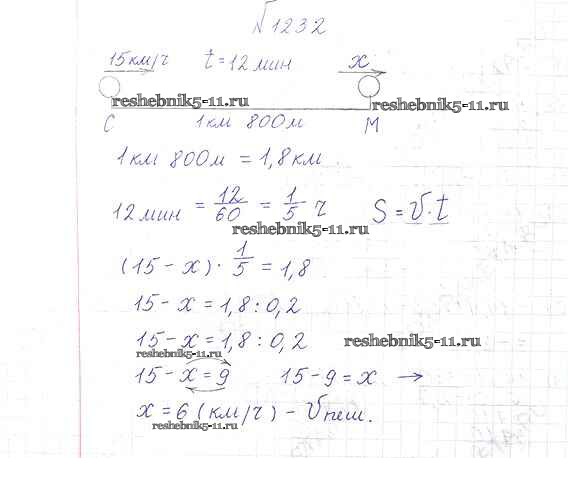 №1232
15км/ч t=12мин x
resheb​nik5-11.ru resheb​nik5-11.ru
С 1км 800м М
1км 800м = 1,8км.
12мин = 12/60 = 1/5 ч S = V·t
reshebnik5-11.ru
(15 - x) · 1/5 = 1,8
15 - x = 1,8 : 0,2
15 - x = 1,8 : 0,2 reshebnik5-11.ru
reshebnik5-11.ru
15 - x = 9 15 - 9 = x →
x = 6 (км/ч) - Vпеш.
reshebnik5-11.ru